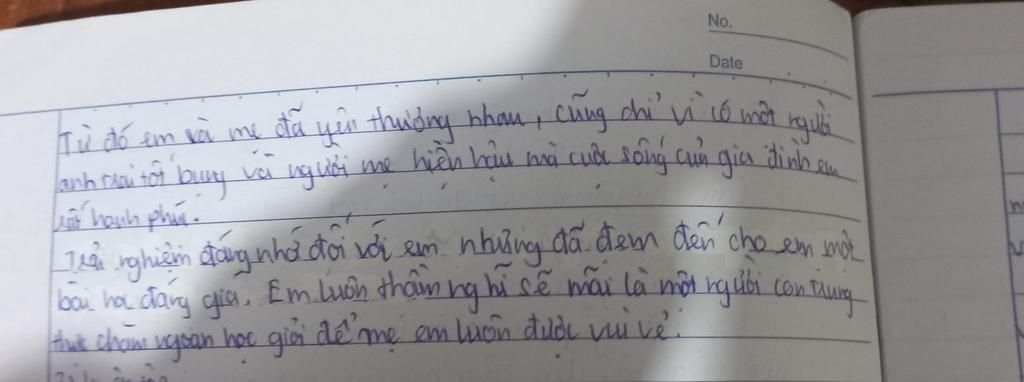 No.
Date
Từ đó em và mẹ đã yên thương nhau, cũng chỉ vì có một người
anh trai tốt bụng và người mẹ hiền hậu mà cuộc sống của gia đình em
rất hạnh phúc.
Trải nghiệm đáng nhớ đối với em nhưng đã đem đến cho em một
bài học đáng giá. Em luôn thầm nghĩ sẽ mãi là một người con trung
thực chăm ngoan học giỏi để mẹ em luôn được vui vẻ.